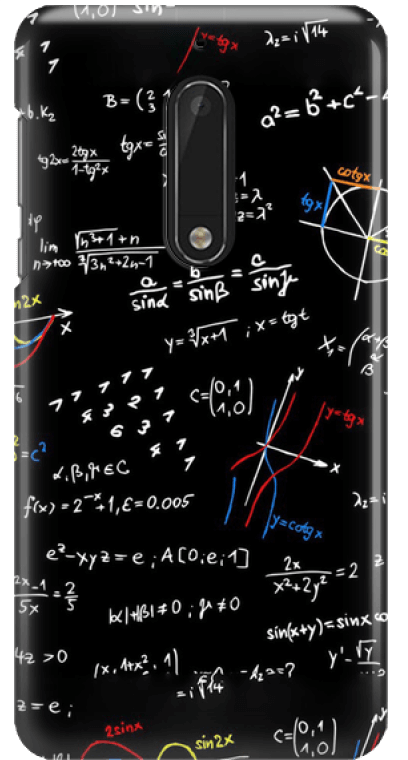 (1,0) sin
y=tgx
λ₂=i√14
B=(2
3
+b.K₂
a²=b²+c²-
tg2x=2tgx/1-tg²x
tgx=
cotgx
tgx
=λ
z=λ²
lim n→+∞ √n³+1+n / ∛3n²+2n-1
a/sinα = b/sinβ = c/sinγ
n2x
x
y=∛x+1 ; x=tgt
X₁=(α+β
α
β
1 1 1 1
4 3 2 1
6 3 1
4 1
1
C=(0,1
1,0)
y
y=tgx
x
=c²
α,β,γ∈C
f(x)=2⁻ˣ+1,ε=0.005
y=cotgx
λ₂=i
eᶻ-xyz=e; A[0;e;1]
2x/x²+2y²=2
z
2x-1/5x=2/5
|α|+|β|≠0 ; γ≠0
sin(x+y)=sinx co
4z>0
|x,1+x²,1|
λ₂=?
y'-√y
=i√14
z=e;
2sinx
sin2x
C=(0,1
1,0)
y